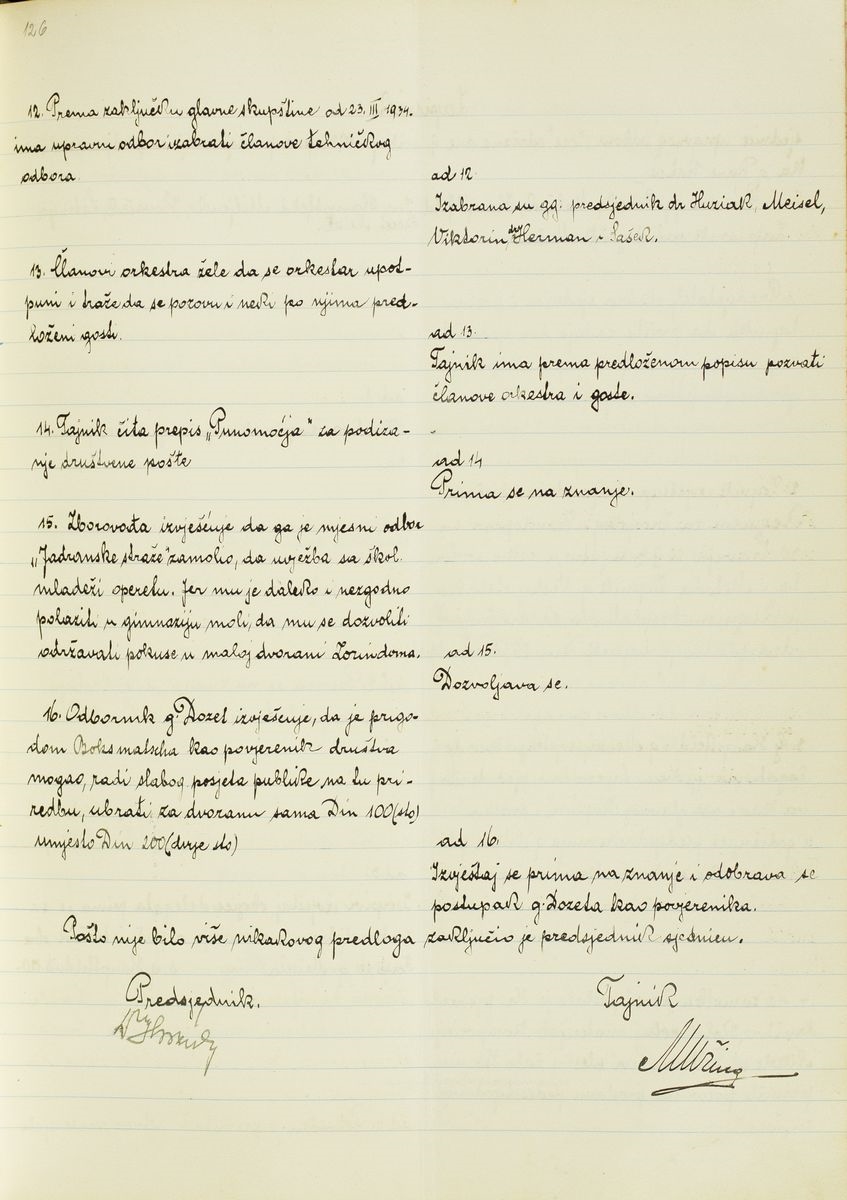 126
12. Prema zaključku glavne skupštine od 23. III 1934.
ima upravni odbor izabrati članove tehničkog
odbora
ad 12.
Izabrana su gg. predsjednik dr Huziak, Meisel,
Viktorin, Herman i Šašek.
13. Članovi orkestra žele da se orkestar upot-
puni i traže da se pozovu i neki po njima pred-
loženi gosti.
ad 13.
Tajnik ima prema predloženom popisu pozvati
članove orkestra i goste.
14. Tajnik čita prepis „Punomoćja" za podiza-
nje društvene pošte
ad 14
Prima se na znanje.
15. Zborovođa izvješćuje da ga je mjesni odbor
„Jadranske straže" zamolio, da uvježba sa škol.
mladeži operetu. Jer mu je daleko i nezgodno
polaziti u gimnaziju moli, da mu se dozvoliti
održavati pokuse u maloj dvorani Zorin doma.
ad 15.
Dozvoljava se.
16. Odbornik g. Dozet izvješćuje, da je prigo-
dom Boksmatscha kao povjerenik društva
mogao, radi slabog posjeta publike na tu pri-
redbu, ubrati za dvoranu sama Din 100 (sto)
umjesto Din 200 (dvje sto)
ad 16.
Izvještaj se prima na znanje i odobrava se
postupak g. Dozeta kao povjerenika.
Pošto nije bilo više nikakovog predloga zaključio je predsjednik sjednicu.
Predsjednik.
Tajnik